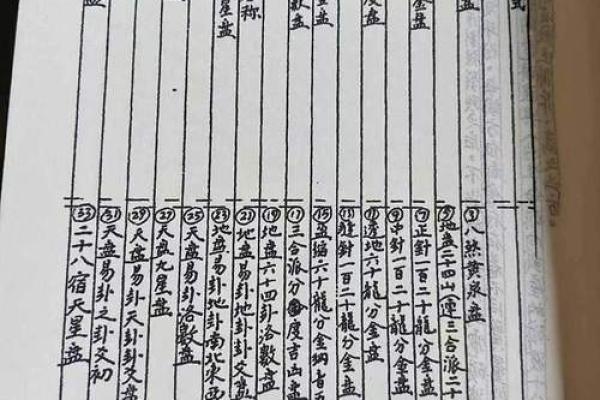 式
盘
金盘
度盘
盘
数盘
称
星盘
③八煞黄泉盘
⑤地盘二十四山(連三合派二十
⑦正針一百二十龍分金盘
⑨中針一百二十龍分金盘
⑪透地六十龍分金盘
⑬縫針一百二十龍分金盘
⑮盈縮六十龍分金納音五
⑰三合派分度吉凶盘
⑲地盘六十四卦洛數盘
㉑地盘易卦地卦卦爻盘
㉓地盘易卦地卦南北東西
㉕天盘易卦洛數盘
㉗天盘九星盘
㉙天盘易卦天卦卦爻盘
㉛天盘易卦之卦爻初
㉝二十八宿天星盘